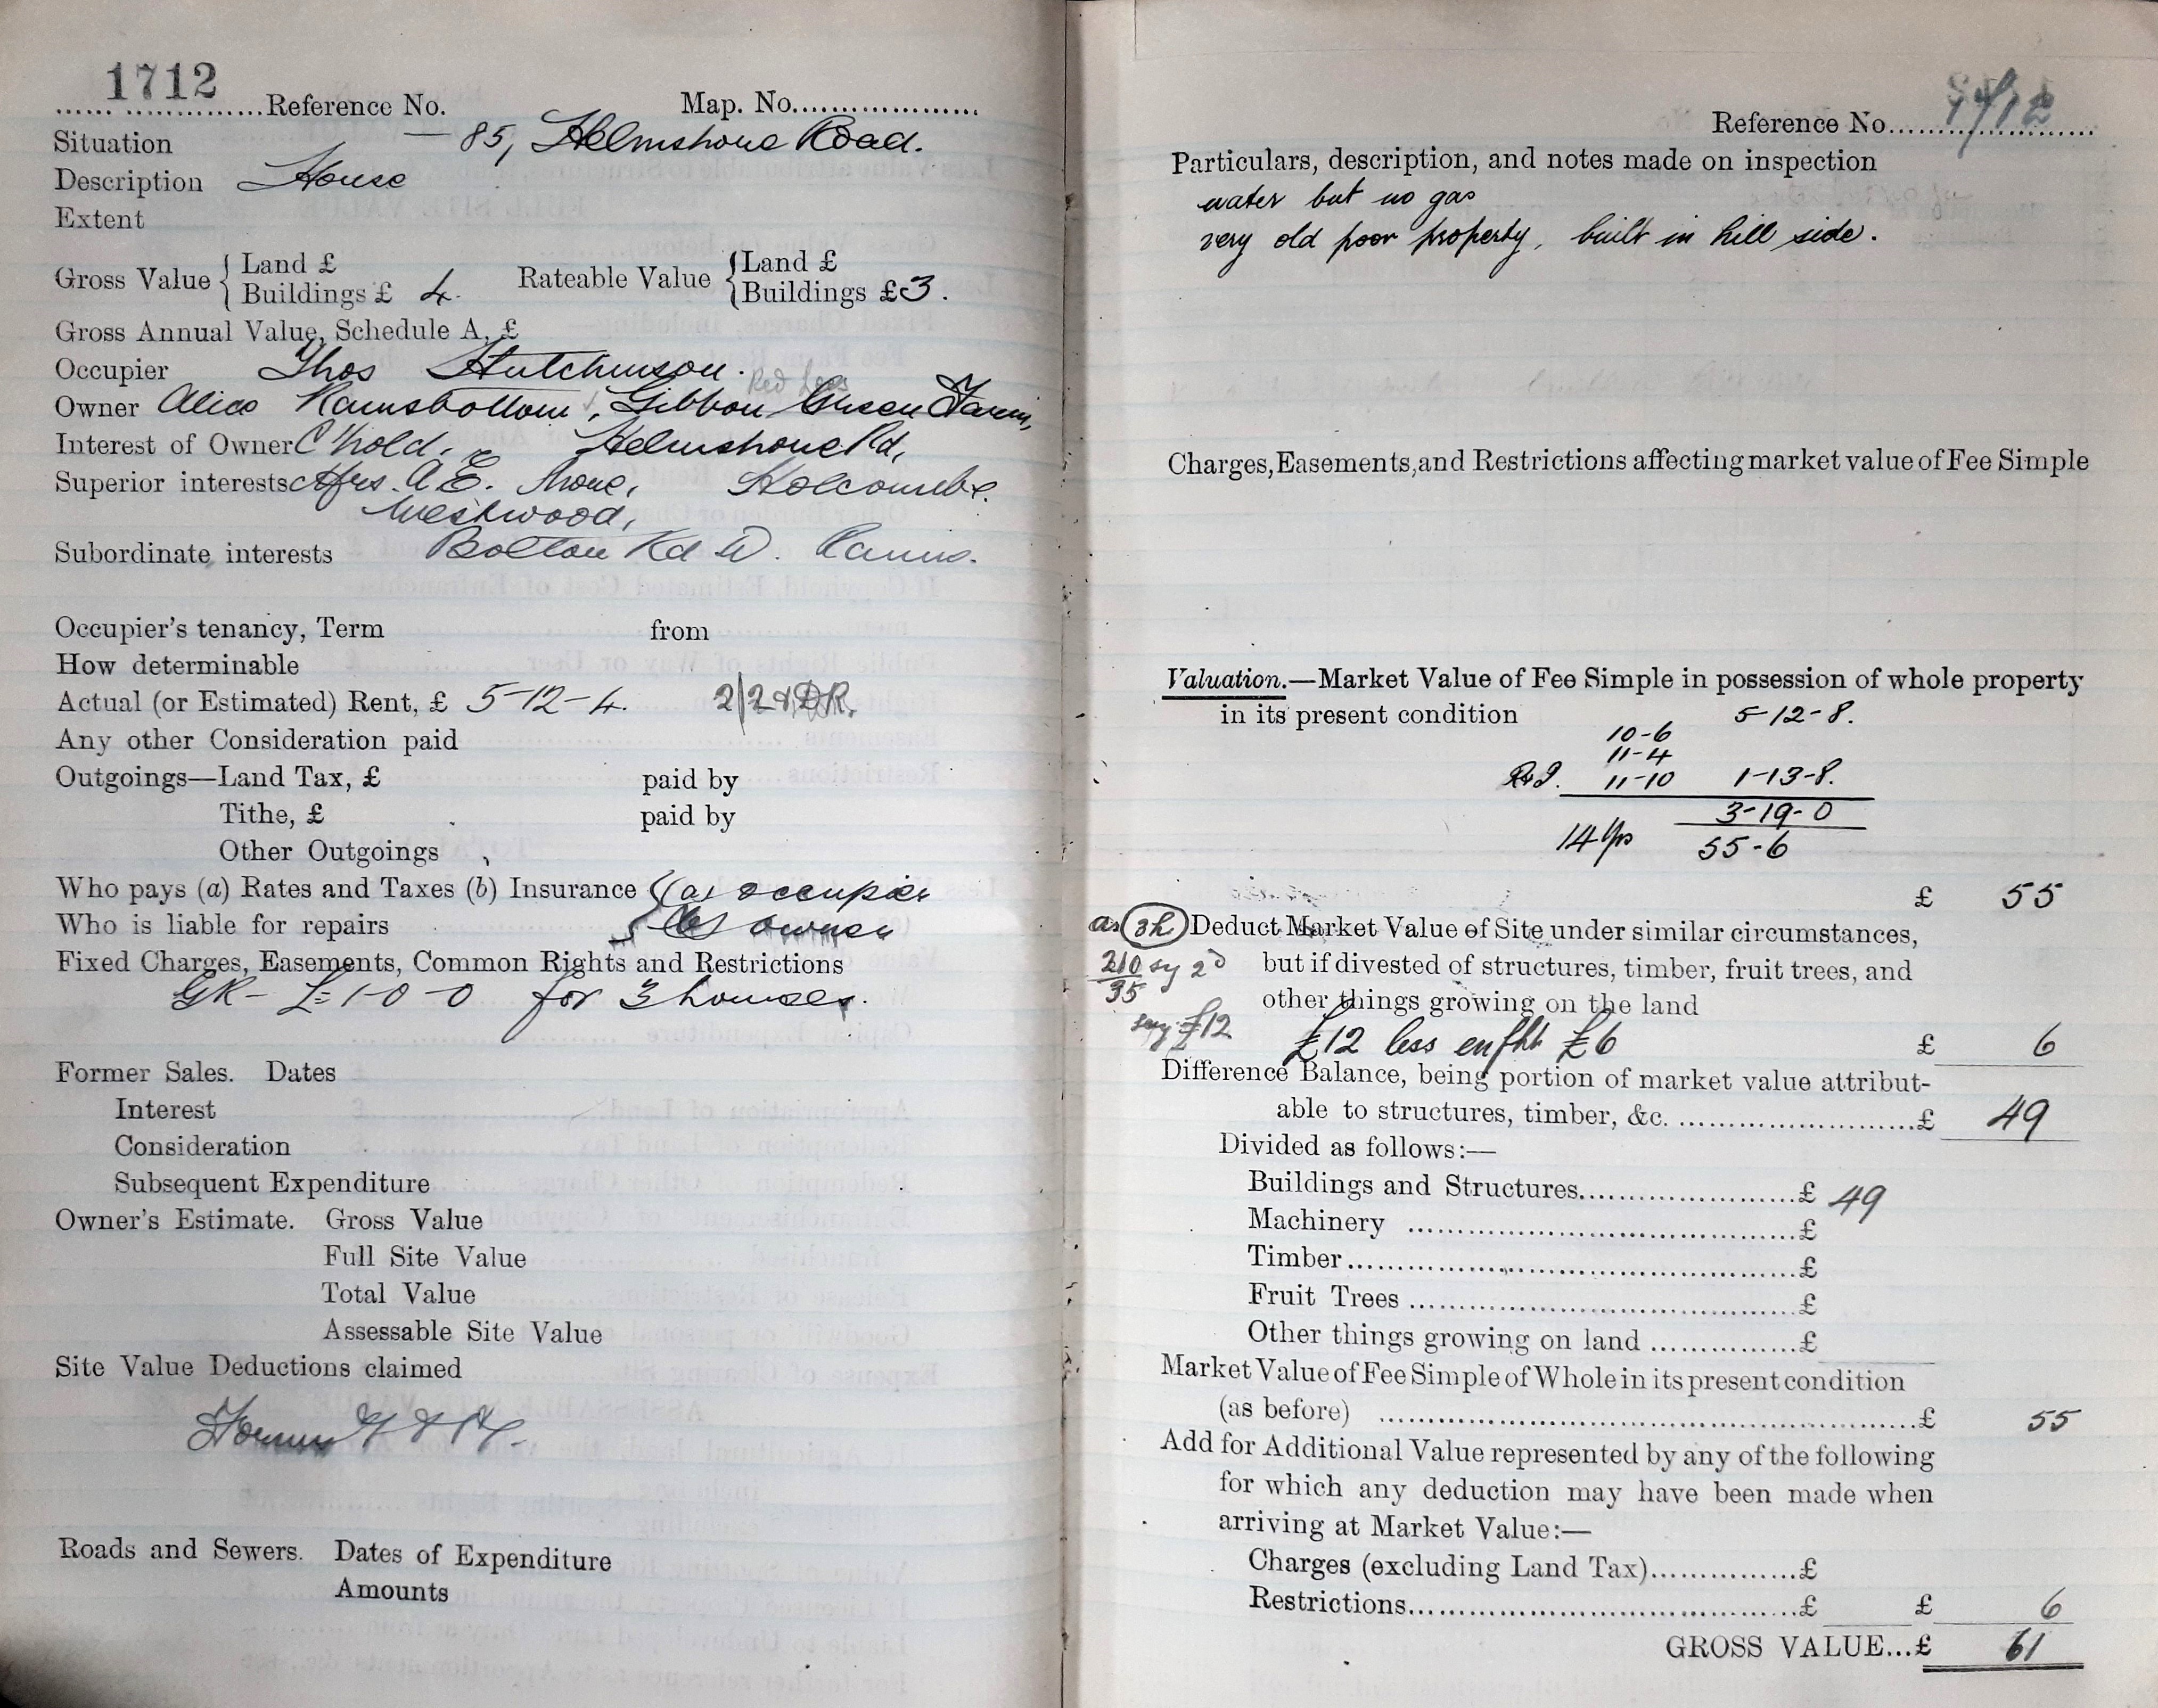 1712
Reference No. Map. No.
Situation — 85, Helmshore Road.
Description House
Extent
Gross Value { Land £ Rateable Value { Land £
Buildings £ 4. Buildings £ 3.
Gross Annual Value, Schedule A, £
Occupier Thos Hutchinson.
Red Lees
Owner Alice Ramsbottom, Gibbon Green Farm,
Interest of Owner C'hold. Helmshore Rd,
Superior interests Mrs. A. E. Holcombe.
Westwood,
Subordinate interests Bolton Rd W. Rams.
Occupier's tenancy, Term from
How determinable
Actual (or Estimated) Rent, £ 5-12-4. 2/2 & DR.
Any other Consideration paid
Outgoings—Land Tax, £ paid by
Tithe, £ paid by
Other Outgoings
Who pays (a) Rates and Taxes (b) Insurance { (a) occupier
Who is liable for repairs (b) owner
Fixed Charges, Easements, Common Rights and Restrictions
GR - £1-0-0 for 3 houses.
Former Sales. Dates
Interest
Consideration
Subsequent Expenditure
Owner's Estimate. Gross Value
Full Site Value
Total Value
Assessable Site Value
Site Value Deductions claimed
Roads and Sewers. Dates of Expenditure
Amounts
Reference No. 1712
Particulars, description, and notes made on inspection
water but no gas
very old poor property, built in hill side.
Charges, Easements, and Restrictions affecting market value of Fee Simple
Valuation.—Market Value of Fee Simple in possession of whole property
in its present condition 5-12-8.
10-6
11-4
R&I. 11-10 1-13-8.
3-19-0
14 yrs 55-6
£ 55
as 3h Deduct Market Value of Site under similar circumstances,
210 sy 2d but if divested of structures, timber, fruit trees, and
35 other things growing on the land
say £12 £12 less enfht £6 £ 6
Difference Balance, being portion of market value attribut-
able to structures, timber, &c. £ 49
Divided as follows:—
Buildings and Structures £ 49
Machinery £
Timber £
Fruit Trees £
Other things growing on land £
Market Value of Fee Simple of Whole in its present condition
(as before) £ 55
Add for Additional Value represented by any of the following
for which any deduction may have been made when
arriving at Market Value:—
Charges (excluding Land Tax) £
Restrictions £ £ 6
GROSS VALUE...£ 61